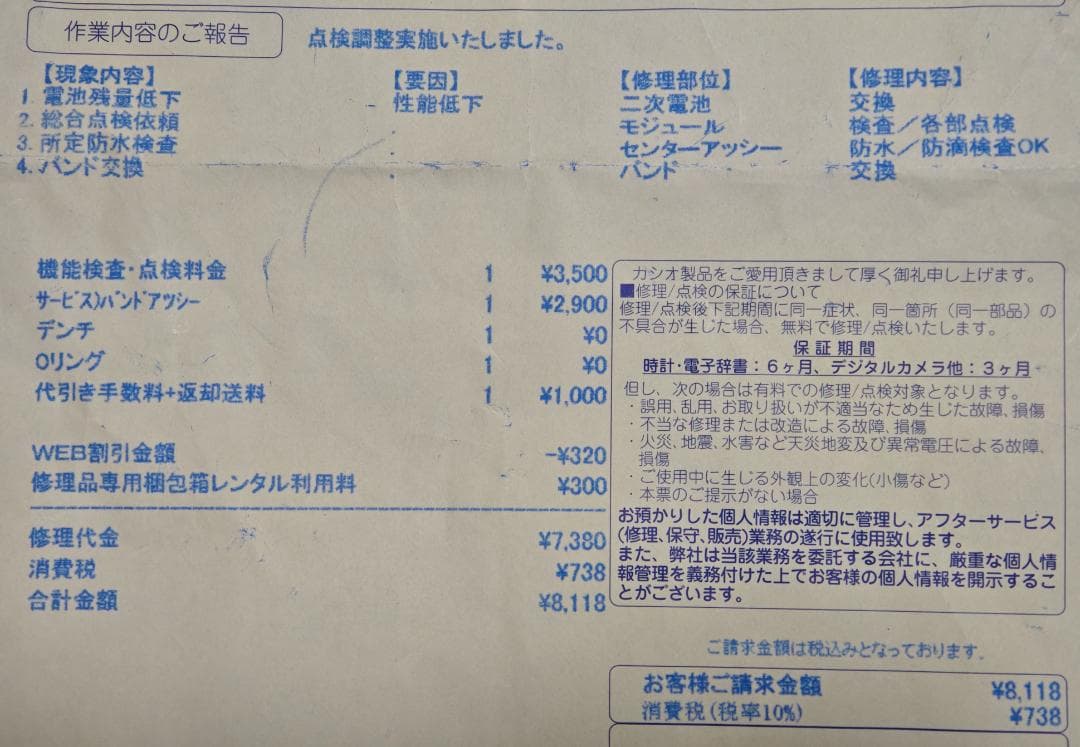 作業内容のご報告 点検調整実施いたしました。
【現象内容】 【要因】 【修理部位】 【修理内容】
1. 電池残量低下 性能低下 二次電池 交換
2. 総合点検依頼 モジュール 検査／各部点検
3. 所定防水検査 センターアッシー 防水／防滴検査OK
4. バンド交換 バンド 交換
機能検査・点検料金 1 ¥3,500
サービス)バンドアツシー 1 ¥2,900
デンチ 1 ¥0
Oリング 1 ¥0
代引き手数料+返却送料 1 ¥1,000
WEB割引金額 -¥320
修理品専用梱包箱レンタル利用料 ¥300
修理代金 ¥7,380
消費税 ¥738
合計金額 ¥8,118
カシオ製品をご愛用頂きまして厚く御礼申し上げます。
■修理/点検の保証について
修理/点検後下記期間に同一症状、同一箇所（同一部品）の
不具合が生じた場合、無料で修理/点検いたします。
保証期間
時計・電子辞書：６ヶ月、デジタルカメラ他：３ヶ月
但し、次の場合は有料での修理/点検対象となります。
・誤用、乱用、お取り扱いが不適当なため生じた故障、損傷
・不当な修理または改造による故障、損傷
・火災、地震、水害など天災地変及び異常電圧による故障、
損傷
・ご使用中に生じる外観上の変化(小傷など)
・本票のご提示がない場合
お預かりした個人情報は適切に管理し、アフターサービス
(修理、保守、販売)業務の遂行に使用致します。
また、弊社は当該業務を委託する会社に、厳重な個人情
報管理を義務付けた上でお客様の個人情報を開示するこ
とがございます。
ご請求金額は税込みとなっております。
お客様ご請求金額 ¥8,118
消費税(税率10%) ¥738